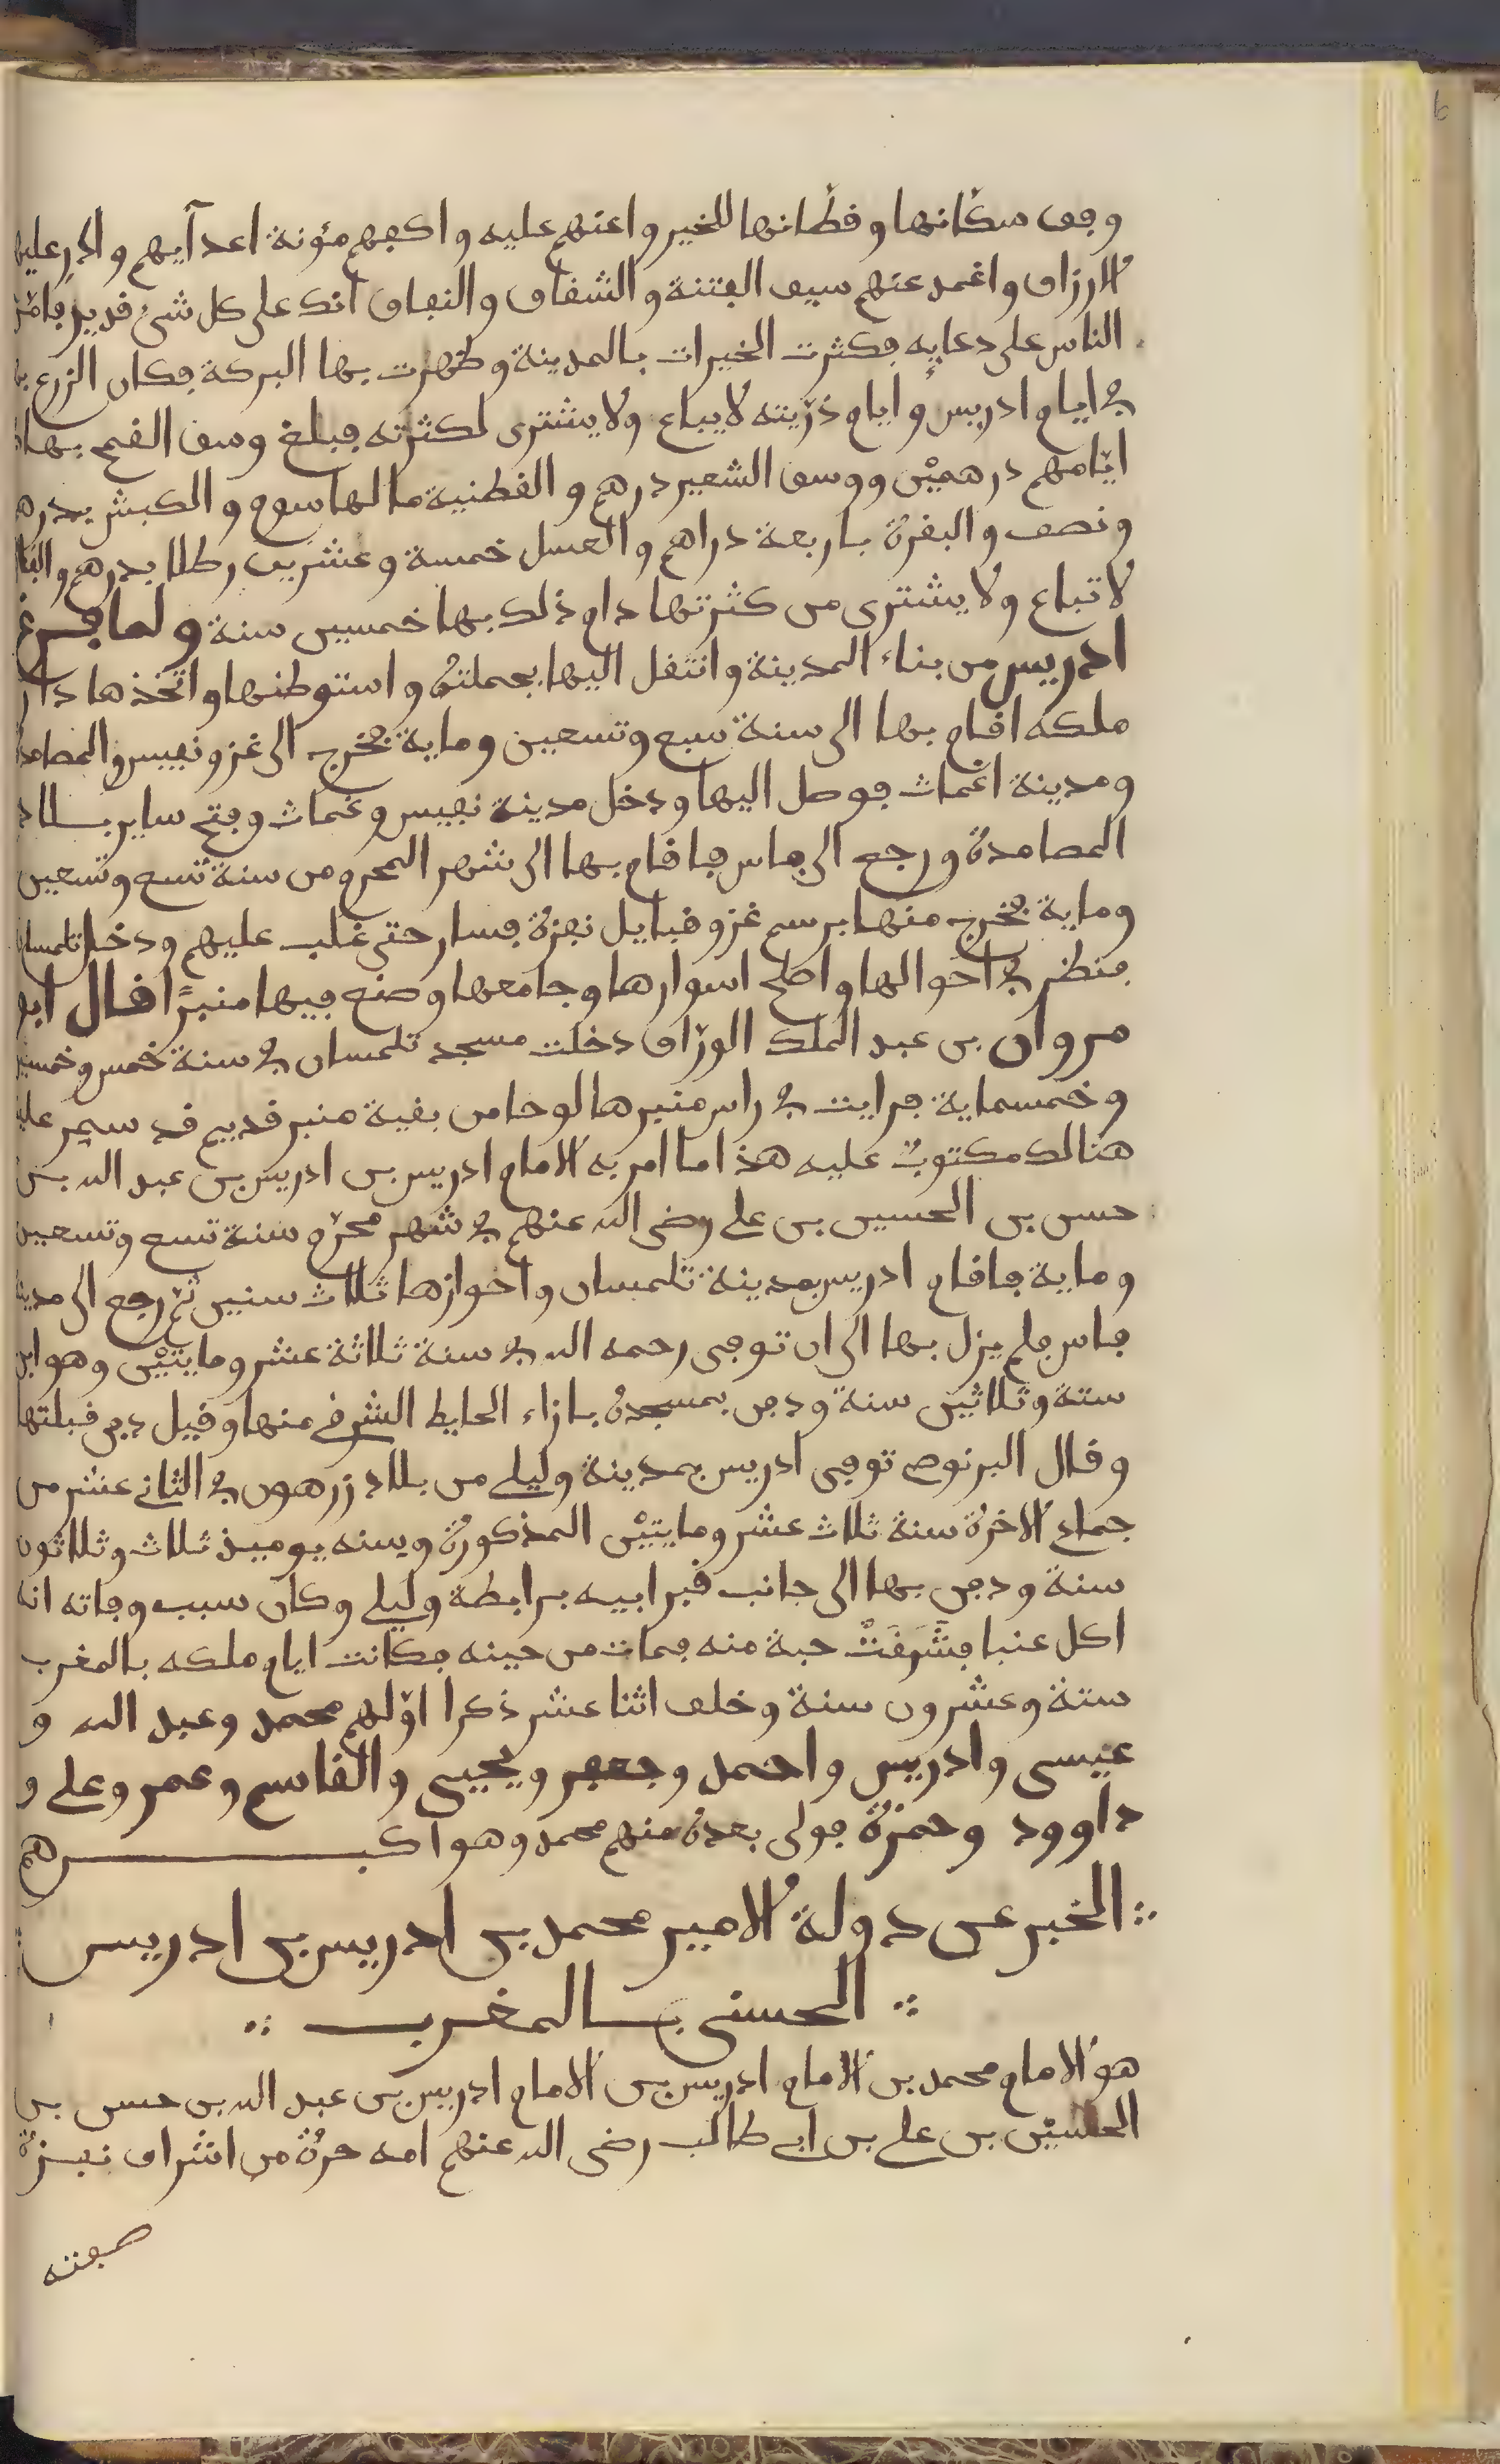 ووفق سكانها وقطانها للخير واعنهم عليه واكفهم مؤنة اعدآيهم وادرر عليهم
الارزاق واغمد عنهم سيف الفتنة والشقاق والنفاق انك على كل شئ قدير فامن
الناس على دعايه فكثرت الخيرات بالمدينة وظهرت بها البركة فكان الزرع بها
في ايام ادريس وايام ذريته لا يباع ولا يشترى لكثرته فبلغ وسق القمح بها في
ايامهم درهمين ووسق الشعير درهم والقطنية ما لها سوم والكبش بدرهم
ونصف والبقرة باربعة دراهم والعسل خمسة وعشرين رطلا بدرهم والفا
لا تباع ولا يشترى من كثرتها دام ذلك بها خمسين سنة ولما فرغ
ادريس من بناء المدينة وانتقل اليها بجملته واستوطنها واتخذها دار
ملكه اقام بها الى سنة سبع وتسعين وماية فخرج الى غزو نفيس والمصامدة
ومدينة اغمات فوصل اليها ودخل مدينة نفيس وغمات وفتح ساير بلاد
المصامدة ورجع الى فاس فاقام بها الى شهر المحرم من سنة تسع وتسعين
وماية فخرج منها برسم غزو قبايل نفزة فسار حتى غلب عليهم ودخل تلمسان
فنظر في احوالها واصلح اسوارها وجامعها وصنع فيها منبرا قال ابو
مروان بن عبد الملك الوراق دخلت مسجد تلمسان في سنة خمس وخمسين
وخمسماية فرايت في راس منبرها لوحا من بقية منبر قديم قد سمر عليه
هنالك مكتوب عليه هذا ما امر به الامام ادريس بن ادريس بن عبد الله بن
حسن بن الحسين بن علي رضى الله عنهم في شهر محرم سنة تسع وتسعين
وماية فاقام ادريس بمدينة تلمسان واحوازها ثلاث سنين ثم رجع الى مدينة
فاس فلم يزل بها الى ان توفى رحمه الله في سنة ثلاثة عشر ومايتين وهو ابن
ستة وثلاثين سنة ودفن بمسجده بازاء الحايط الشرفي منها وقيل دفن قبلتها
وقال البرنوصي توفى ادريس بمدينة وليلي من بلاد زرهون في الثاني عشر من
جماد الاخرة سنة ثلاث عشر ومايتين المذكورة وسنه يوميذ ثلاث وثلاثون
سنة ودفن بها الى جانب قبر ابيه برابطة وليلي وكان سبب وفاته انه
اكل عنبا فشرقت حبة منه فمات من حينه فكانت ايام ملكه بالمغرب
ستة وعشرون سنة وخلف اثنا عشر ذكرا اولهم محمد وعبد الله و
عيسى وادريس واحمد وجعفر ويحيى والقاسم وعمر وعلي و
داوود وحمزة فولى بعده منهم محمد وهو اكبرهم
الخبر عن دولة الامير محمد بن ادريس بن ادريس
الحسنى بالمغرب
هو الامام محمد بن الامام ادريس بن الامام ادريس بن عبد الله بن حسن بن
الحسين بن علي بن ابي طالب رضى الله عنهم امه حرة من اشراف نفزة
صفته